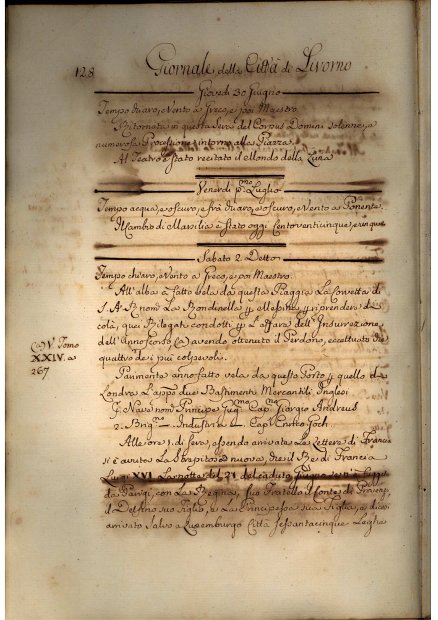 128 Giornale della Città di Livorno
Giovedi 30 Giugno
Tempo chiaro, e Vento a Greco, e poi Maestro.
Ritornata in questa Sera del Corpus Domini solenne, e
numerosa Processione intorno alla Piazza.
Al Teatro è stato recitato il Mondo della Luna
Venerdi p.mo Luglio
Tempo acqua, e oscuro, e frà chiaro, e oscuro, e Vento a Ponente.
Il Cambio di Marsilia è stato oggi Centoventicinque, e un quar
Sabato 2. Detto
Tempo chiaro, e Vento a Greco, e poi Maestro.
All'alba è fatto vela da questa Piaggia La Corvetta di
S. A. R. nom. La Rondinella p. Messina p. riprendere di
colà, quei Rilegati condotti p. l'affare dell'Insurrezione
dell'Anno scorso (a) avendo ottenuto il Perdono, eccettuati che
quattro de i più colpevoli.
(a) V. Tomo
XXIV. a
267
Parimente anno fatto vela da questo Porto p. quello di
Londra L'appo due Bastimenti Mercantili Inglesi
1. Nave nom. Principe Cap.no Giorgio Andreus
2. Brig.no — Industria — Cap. Enrico Goch
Alle ore 3. di sera, essendo arrivate Le Lettere di Francia
si è avuta La strepitosa nuova, che il Re di Francia
Luigi XVI. La notte del 21 del caduto Giugno
da Parigi, con La Regina, suo Fratello il Conte di Provenza,
il Delfino suo figlio, e La Principessa sua Figlia, e dicesi
arrivato Salvo a Luxemburgo Città sessantacinque Leghe